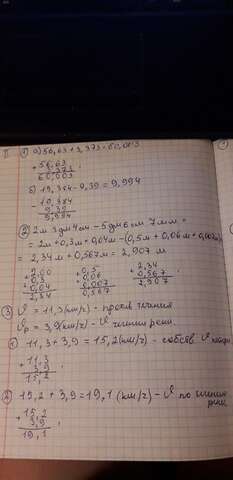 II ① а) 56,63 + 3,373 = 60,003
+ 56,63
3,373
60,003
б) 19,384 - 9,39 = 9,994
- 19,384
9,39
9,994
② 2м 3дм 4см - 5дм 6см 7мм =
= 2м + 0,3м + 0,04м - (0,5м + 0,06м + 0,007м)
= 2,34м + 0,567м = 2,907 м
+ 2,00
0,3
0,04
2,34
+ 0,5
0,06
0,007
0,567
+ 2,34
0,567
2,907
③ V = 11,3 (км/ч) - против течения
Vр = 3,9 (км/ч) - V течения реки
① 11,3 + 3,9 = 15,2 (км/ч) - собств V
+ 11,3
3,9
15,2
② 15,2 + 3,9 = 19,1 (км/ч) - V по течению
реки
+ 15,2
3,9
19,1